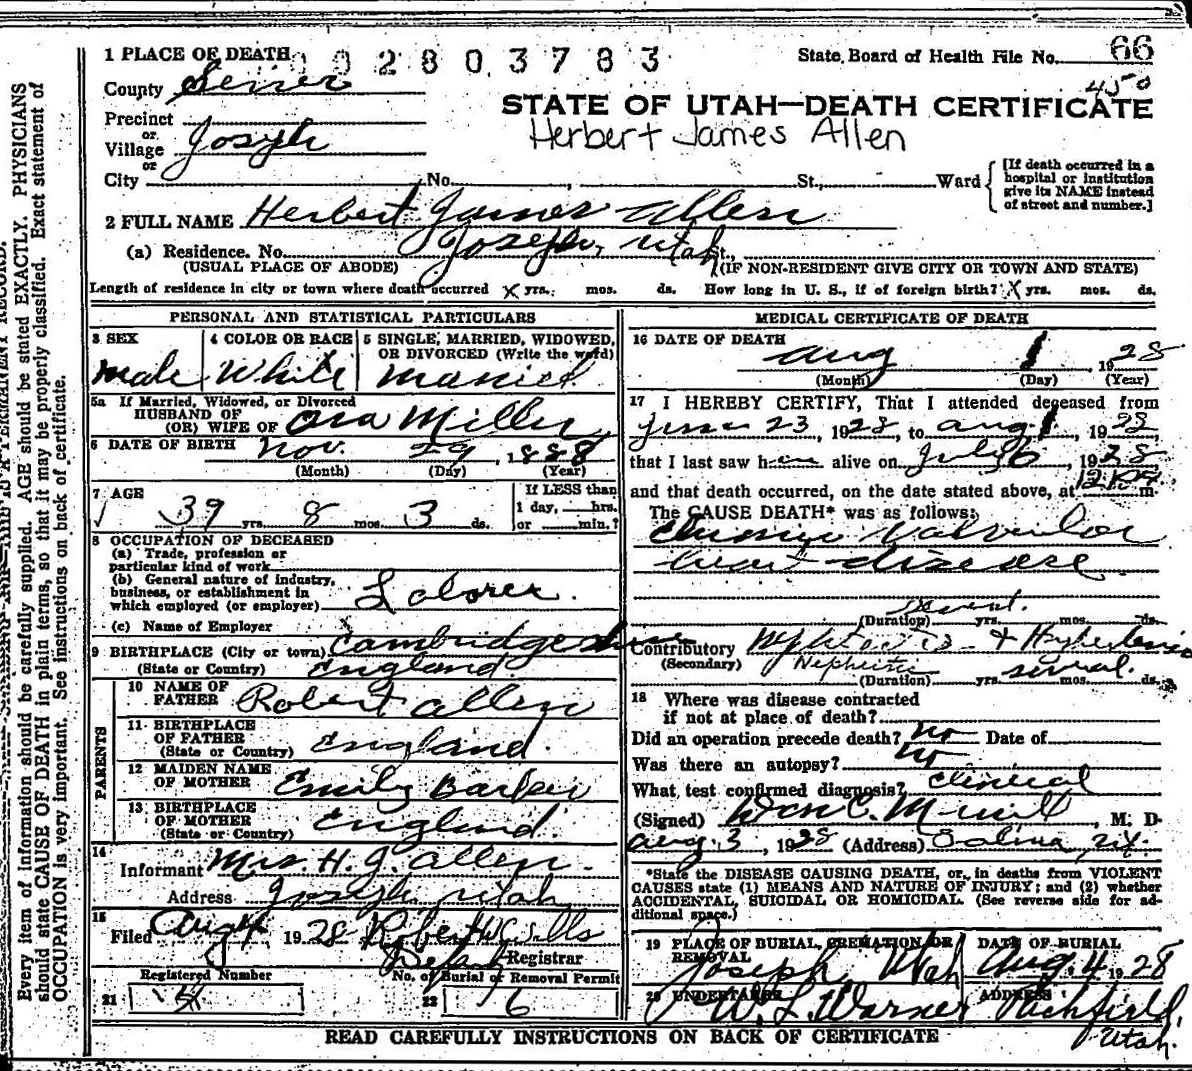 1 PLACE OF DEATH
002803783
State Board of Health File No. 66
County Sevier
450
STATE OF UTAH—DEATH CERTIFICATE
Precinct
or
Village Joseph
Herbert James Allen
or
City No. , St., Ward
[If death occurred in a
hospital or institution
give its NAME instead
of street and number.]
2 FULL NAME Herbert James Allen
(a) Residence. No. Joseph, Utah St.,
(USUAL PLACE OF ABODE) (IF NON-RESIDENT GIVE CITY OR TOWN AND STATE)
Length of residence in city or town where death occurred X yrs. mos. ds. How long in U. S., if of foreign birth? X yrs. mos. ds.
PERSONAL AND STATISTICAL PARTICULARS
3 SEX
Male
4 COLOR OR RACE
White
5 SINGLE, MARRIED, WIDOWED,
OR DIVORCED (Write the word)
Married
5a If Married, Widowed, or Divorced
HUSBAND OF
(OR) WIFE OF Ora Miller
6 DATE OF BIRTH Nov. 29, 1888
(Month) (Day) (Year)
7 AGE
39 yrs. 8 mos. 3 ds.
If LESS than
1 day, hrs.
or min.?
8 OCCUPATION OF DECEASED
(a) Trade, profession or
particular kind of work
(b) General nature of industry,
business, or establishment in
which employed (or employer) Laborer.
(c) Name of Employer
9 BIRTHPLACE (City or town) Cambridgeshire
(State or Country) England.
PARENTS
10 NAME OF
FATHER Robert Allen
11 BIRTHPLACE
OF FATHER
(State or Country) England.
12 MAIDEN NAME
OF MOTHER Emily Barker
13 BIRTHPLACE
OF MOTHER
(State or Country) England.
14
Informant Mrs. H. J. Allen.
Address Joseph Utah
15
Filed Aug 4 1928 Robert W
Deputy Registrar
Registered Number
No. of Burial or Removal Permit
21
22 6
MEDICAL CERTIFICATE OF DEATH
16 DATE OF DEATH
Aug 1 1928
(Month) (Day) (Year)
17 I HEREBY CERTIFY, That I attended deceased from
June 23, 1928, to Aug 1, 1928
that I last saw him alive on July 6, 1928
and that death occurred, on the date stated above, at m.
The CAUSE DEATH* was as follows:
Chronic Valvular
heart disease
several.
(Duration) yrs. mos. ds.
Contributory
(Secondary) Nephritis
(Duration) yrs. several. mos. ds.
18 Where was disease contracted
if not at place of death?
Did an operation precede death? no Date of
Was there an autopsy? no
What test confirmed diagnosis? Clinical
(Signed) Wm C. Merrill, M. D.
Aug. 3, 1928 (Address) Salina, Ut.
*State the DISEASE CAUSING DEATH, or, in deaths from VIOLENT
CAUSES state (1) MEANS AND NATURE OF INJURY; and (2) whether
ACCIDENTAL, SUICIDAL OR HOMICIDAL. (See reverse side for ad-
ditional space.)
19 PLACE OF BURIAL, CREMATION OR
REMOVAL
Joseph Utah
DATE OF BURIAL
Aug. 4 1928
20 UNDERTAKER
W. L. Warner
ADDRESS
Richfield,
Utah.
READ CAREFULLY INSTRUCTIONS ON BACK OF CERTIFICATE
Every item of information should be carefully supplied. AGE should be stated EXACTLY. PHYSICIANS
should state CAUSE OF DEATH in plain terms, so that it may be properly classified. Exact statement of
OCCUPATION is very important. See instructions on back of certificate.